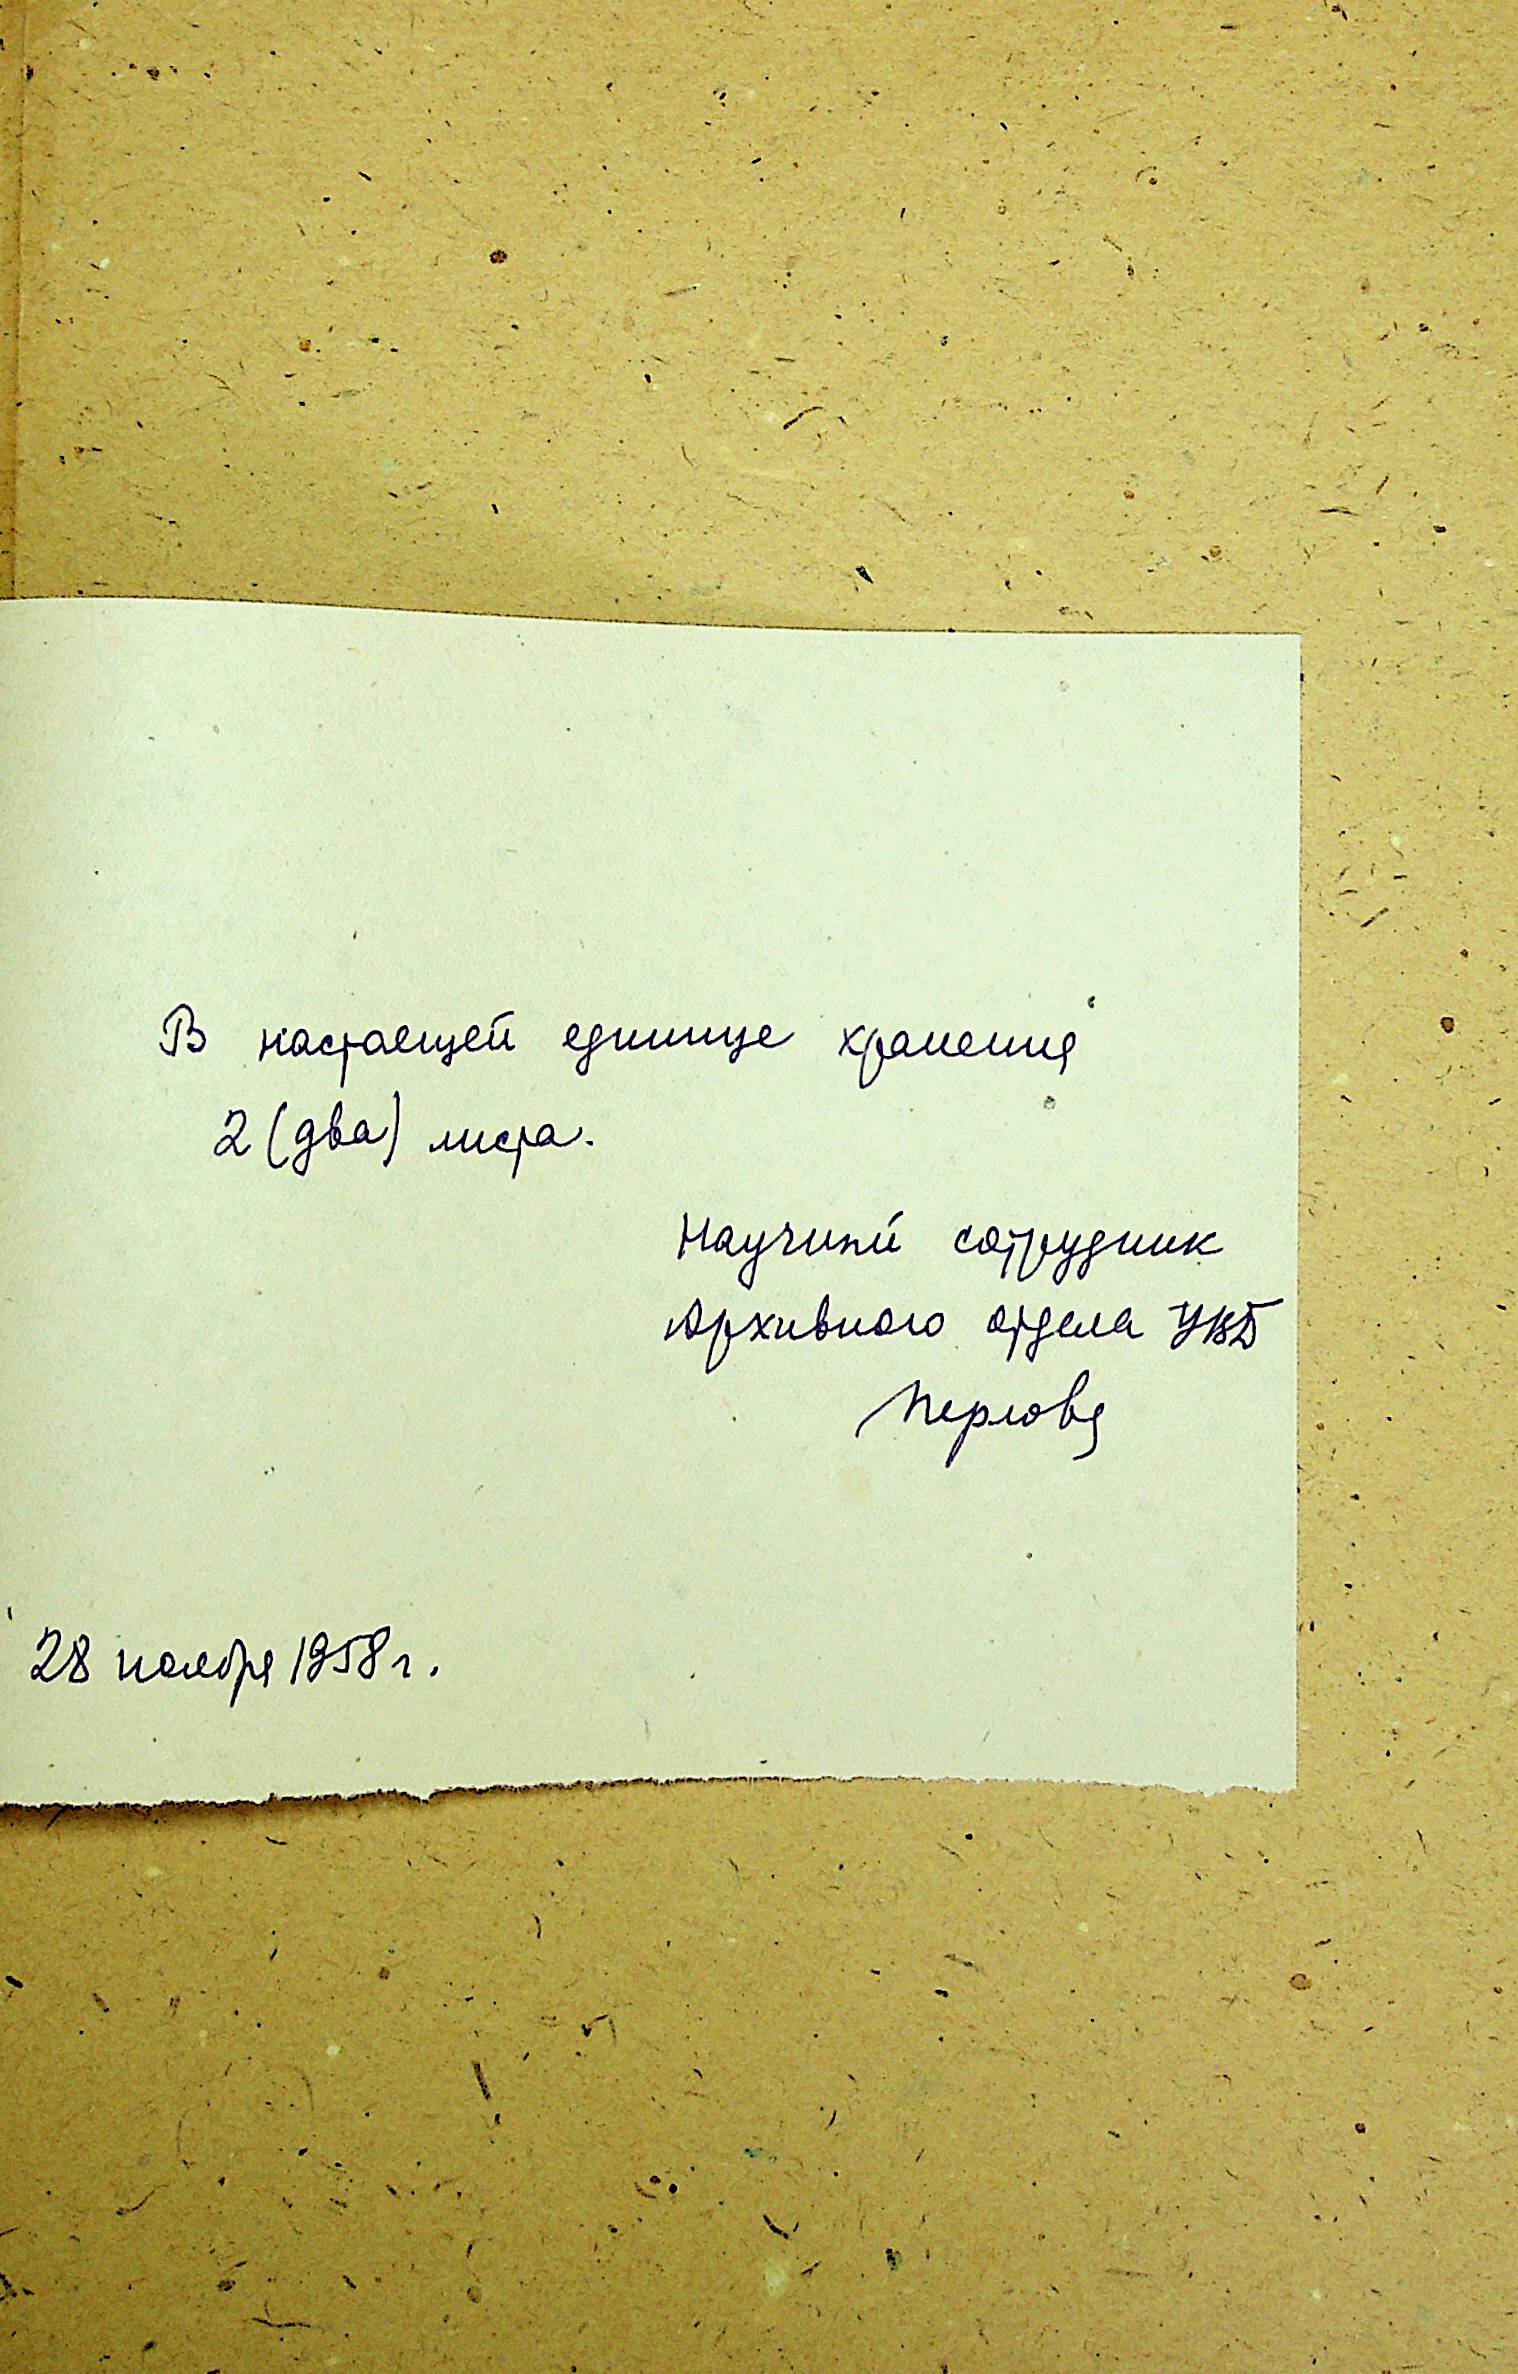 В настоящей единице хранения
2 (два) листа.
Научный сотрудник
Архивного отдела УВД
Перлова
28 ноября 1958 г.